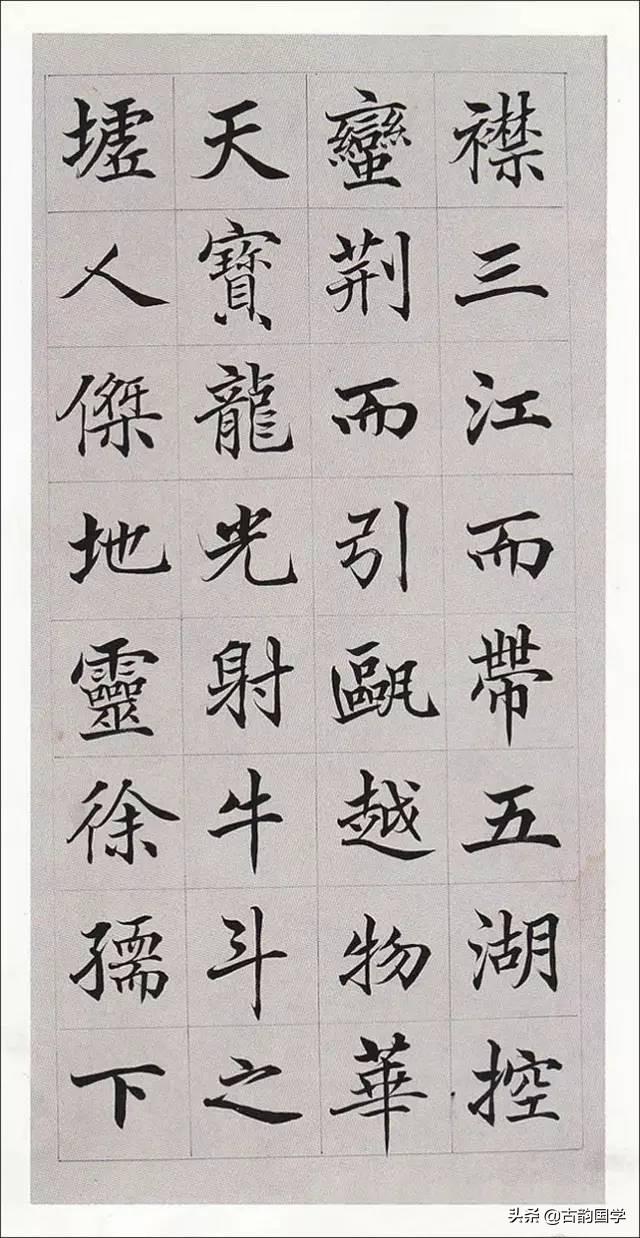 襟三江而帶五湖控
蠻荆而引甌越物華
天寳龍光射牛斗之
墟人傑地靈徐孺下
头条@古韵国学